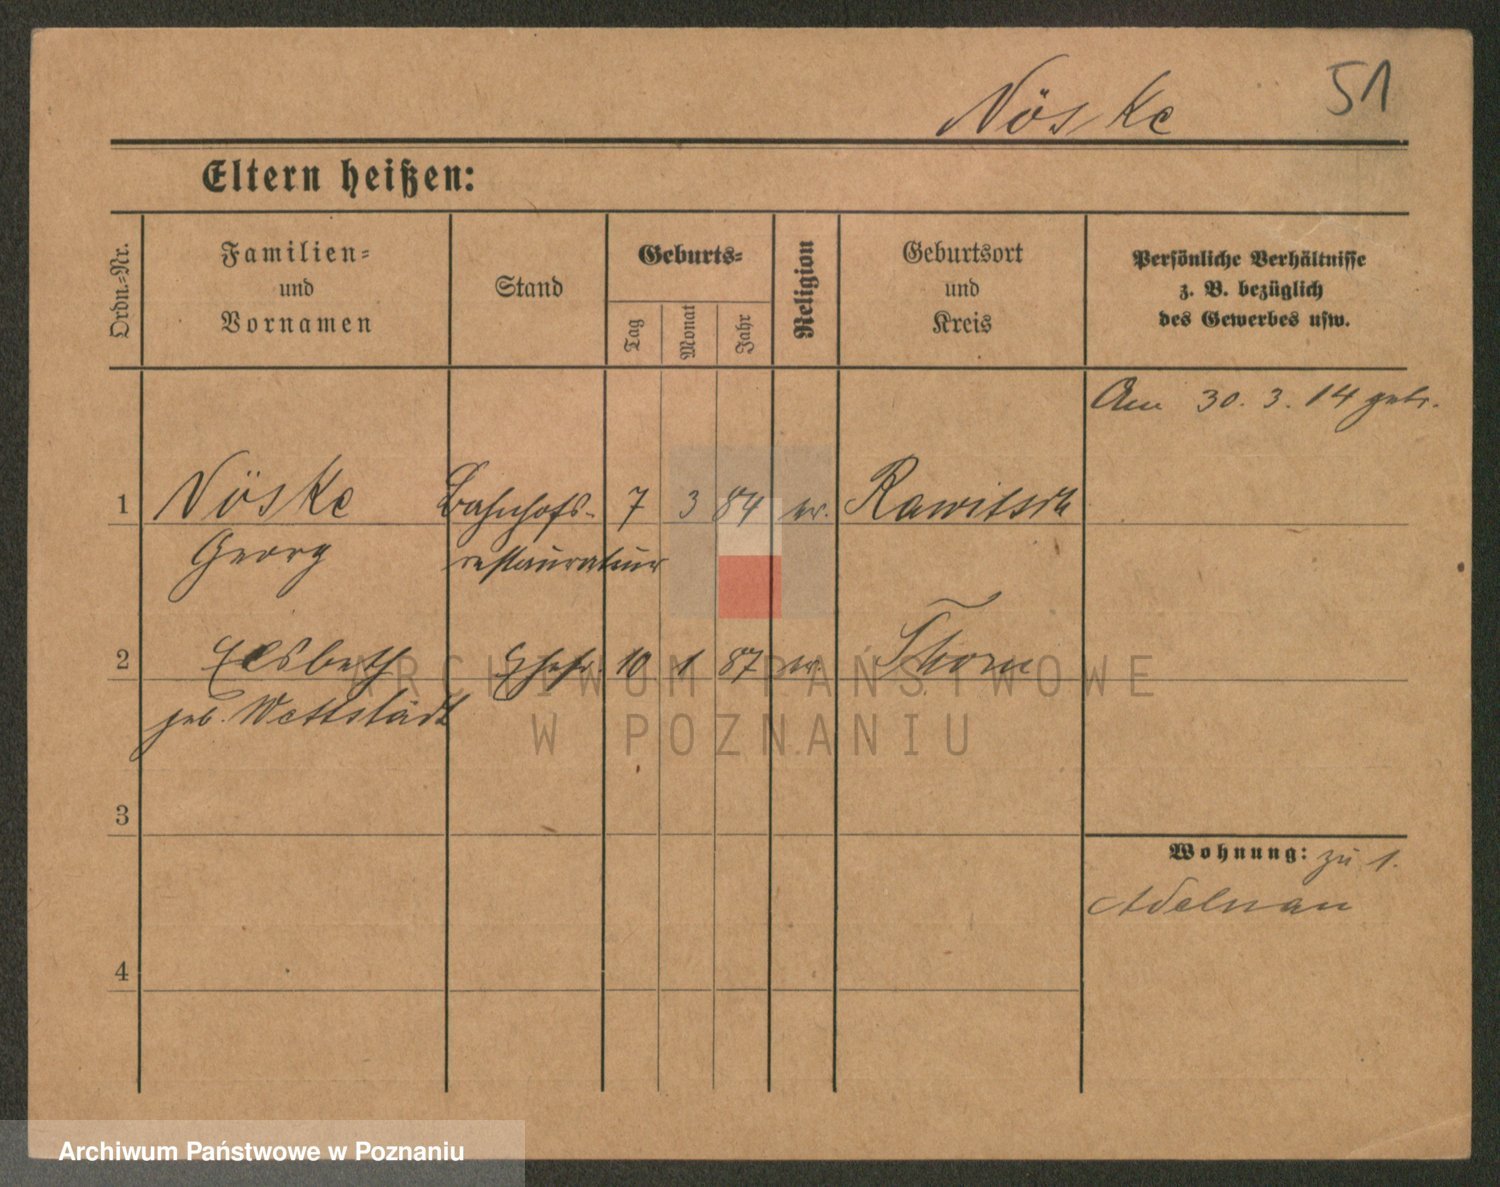 Nöske 51
Eltern heißen:
Ordn.-Nr.
Familien-
und
Vornamen
Stand
Geburts-
Tag
Monat
Jahr
Religion
Geburtsort
und
Kreis
Persönliche Verhältnisse
z. B. bezüglich
des Gewerbes usw.
Am 30. 3. 14 getr.
1 Nöske Bahnhofs- 7 3 84 ev. Rawitsch
Georg restaurateur
2 Elsbeth Ehefr. 10 1 87 ev. Thorn
geb. Wettstädt
3
Wohnung: zu 1.
Adelnau
4
ARCHIWUM PAŃSTWOWE
W POZNANIU
Archiwum Państwowe w Poznaniu